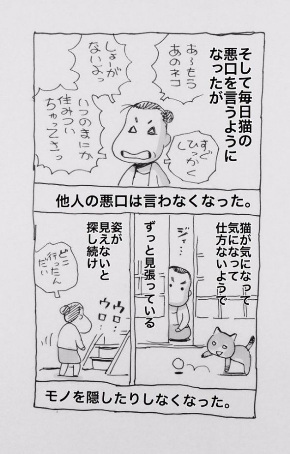 そして毎日猫の
悪口を言うように
なったが
あ〜もう
あのネコ
しょーが
ないよっ
すぐ
ひっかく
いつのまにか
住みつい
ちゃってさっ
他人の悪口は言わなくなった。
猫が気になって
気になって
仕方ないようで
ジィ…
ずっと見張っている
姿が
見えないと
探し続け
どこ
行ったん
だい
ウロ…
ウロ…
モノを隠したりしなくなった。